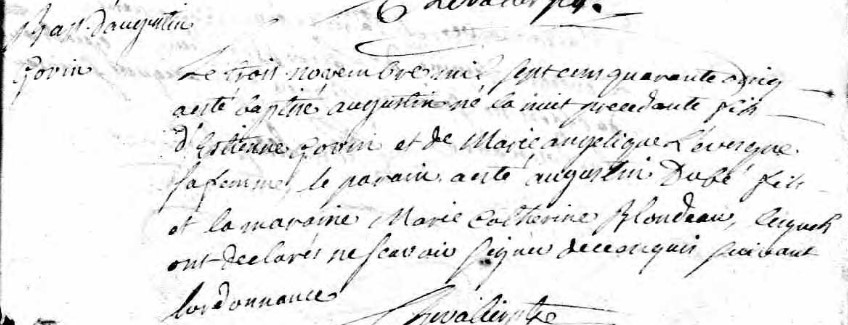 Chevalier ptr.
Bap. d'augustin
Govin
Le trois novembre mil sept cens quarante cinq
a esté baptisé augustin né la nuit precedante fils
d'Estienne Govin et de Marie angelique Levesque
sa femme, le parain a esté augustin Dubé fils
et la maraine Marie Catherine Blondeau, lesquels
ont declarés ne scavoir signer de ce enquis suivant
lordonnance
Chevalier ptre